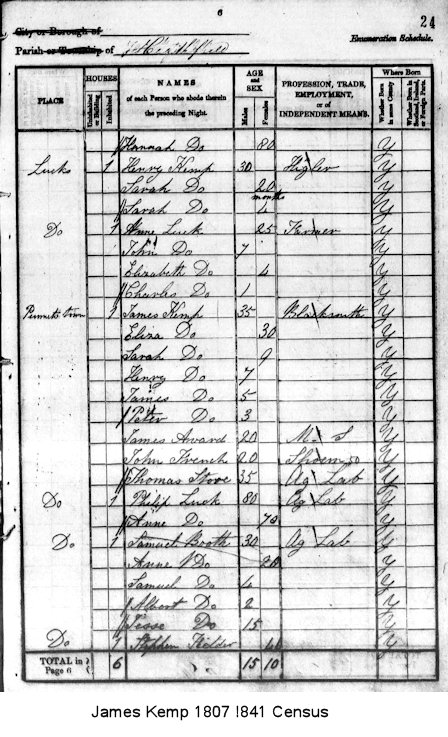 6
24
City or Borough of
Parish or Township of Heathfield
Enumeration Schedule.
PLACE
HOUSES
Uninhabited or Building
Inhabited
NAMES of each Person who abode therein the preceding Night.
AGE and SEX
Males
Females
PROFESSION, TRADE, EMPLOYMENT, or of INDEPENDENT MEANS.
Where Born
Whether Born in same County
Whether Born in Scotland, Ireland, or Foreign Parts.
Hannah Do 80 Y
Lucks 1 Henry Kemp 30 Higler Y
Sarah Do 20 Y
Sarah Do months 4 Y
Do 1 Anne Luck 25 Farmer Y
John Do 7 Y
Elizabeth Do 4 Y
Charles Do 1 Y
Punnetts town 1 James Kemp 35 Blacksmith Y
Eliza Do 30 Y
Sarah Do 9 Y
Henry Do 7 Y
James Do 5 Y
Peter Do 3 Y
James Award 20 M. S Y
John French 20 Shoem Do Y
Thomas Stove 35 Ag Lab Y
Do 1 Philip Luck 80 Ag Lab Y
Anne Do 70 Y
Do 1 Samuel Booth 30 Ag Lab Y
Anne Do Y
Samuel Do 4 Y
Albert Do 2 Y
Jesse Do 15 Y
Do 1 Stephen Y
TOTAL in Page 6 6 15 10
James Kemp 1807 1841 Census